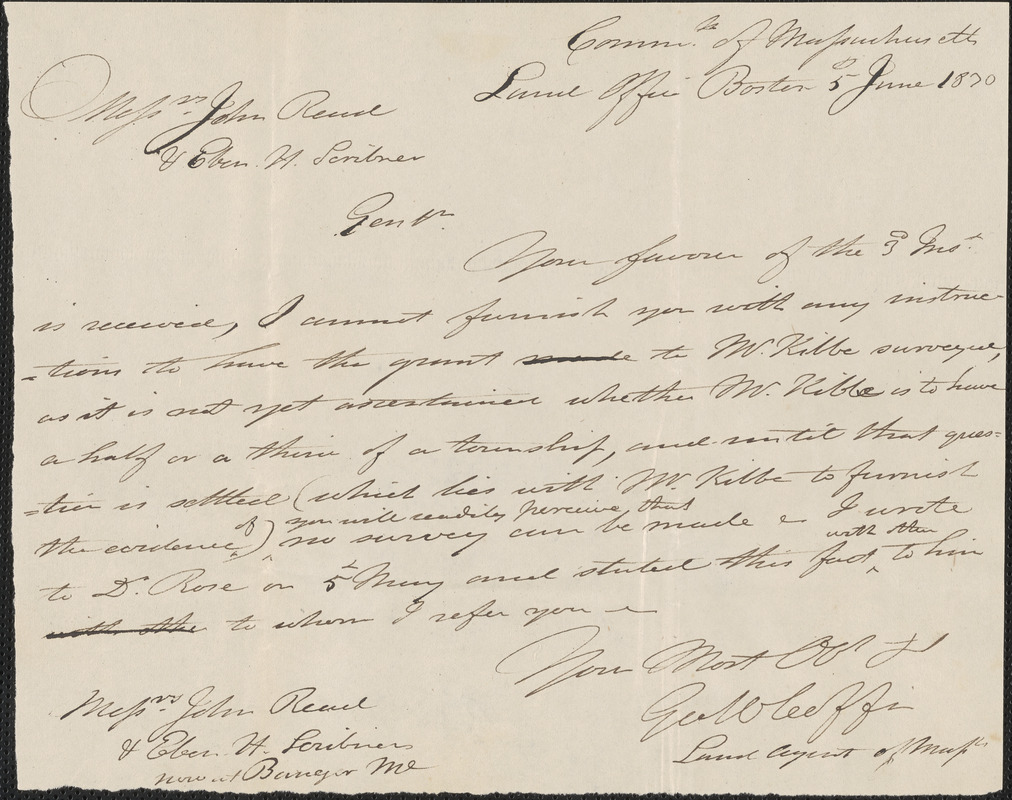 Commth of Massachusetts
Land Office Boston 5th June 1830
Messrs John Read
& Eben. H. Scribner
Gentn
Your favour of the 3d Inst
is received, I cannot furnish you with any instruc-
-tions to have the grant made to Mr. Kilbe surveyed,
as it is not yet ascertained whether Mr. Kilbe is to have
a half or a third of a township, and until that ques=
=tion is settled (which lies with Mr. Kilbe to furnish
the evidence of) you will readily perceive that
no survey can be made – I wrote
to Dr. Rose on 5th May and stated this fact with the to him
with the to whom I refer you –
Your Most Obt St
Geo W Coffin
Land Agent of Mass
Messrs John Read
& Eben. H. Scribner
now at Bangor Me